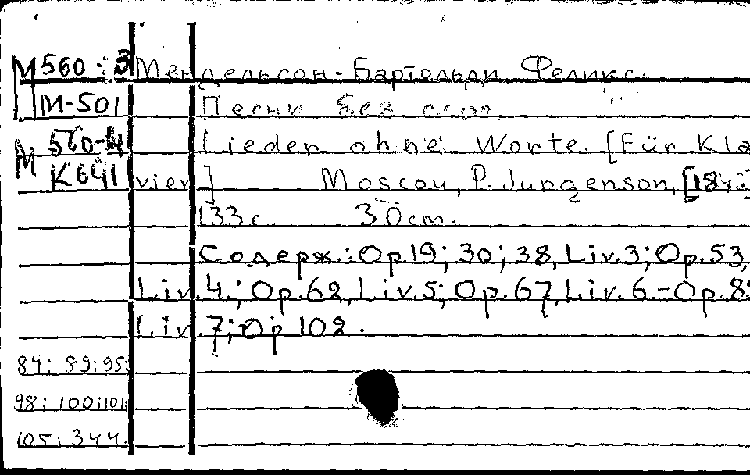 М 560-3 Мендельсон-Бартольди Феликс.
M-501 Песни без слов
М 560-4 Lieder ohne Worte. [Für Kla
K641 vier] Moscou, P. Jurgenson, [18
133 с. 30 cm.
Содерж.: Op 19; 30; 38, Liv. 3; Op. 53,
Liv. 4.; Op. 62, Liv. 5; Op. 67, Liv. 6.-Op. 8
Liv. 7; Op 102.
84; 89; 95;
98; 100; 101;
105; 344.